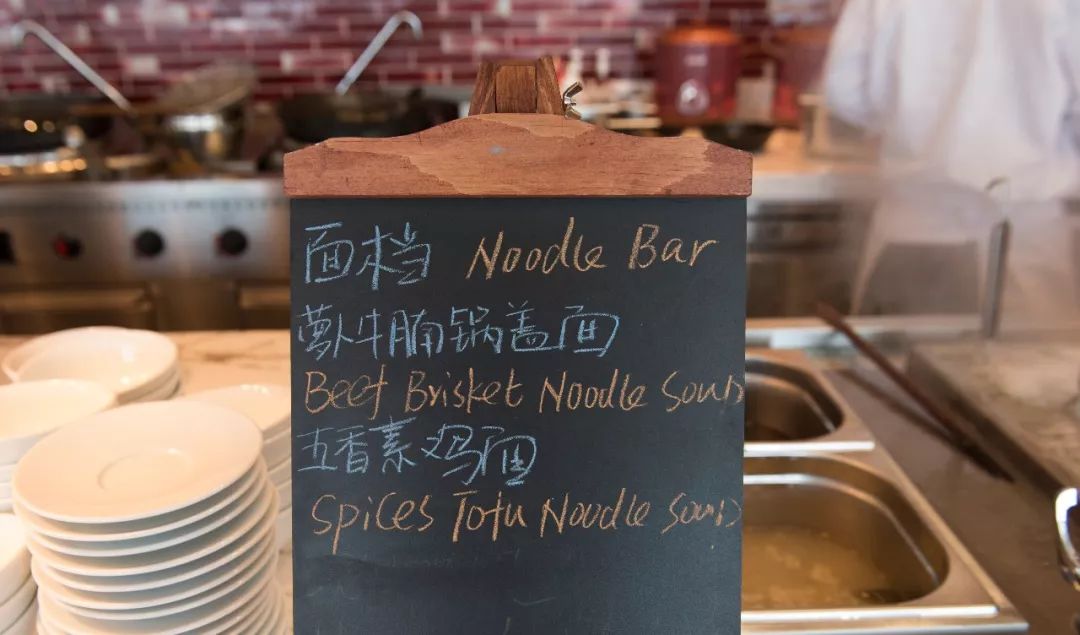 面档 Noodle Bar
萝卜牛腩锅盖面
Beef Brisket Noodle Soup
五香素鸡面
Spices Tofu Noodle Soup